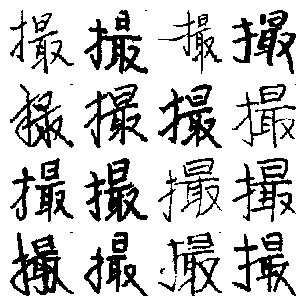 撮撮撮撮
撮撮撮撮
撮撮撮撮
撮撮撮撮